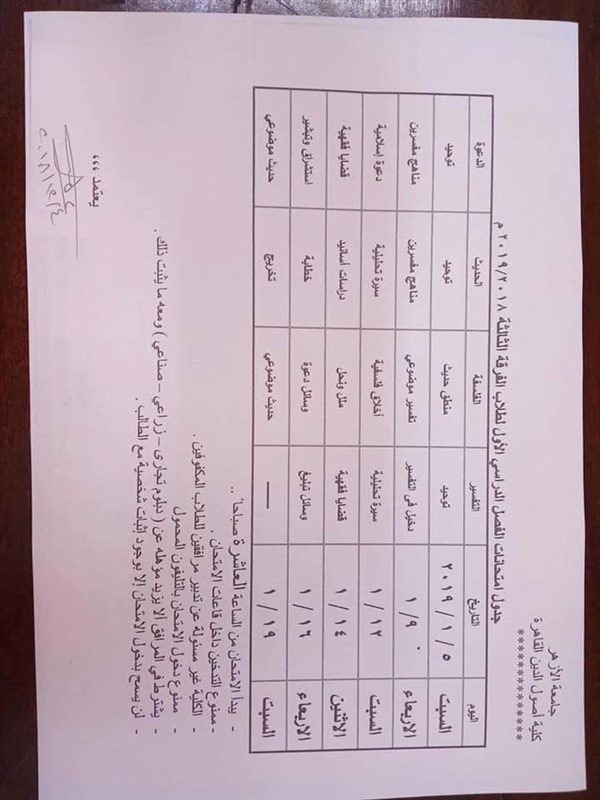 جامعة الأزهر
كلية أصول الدين القاهرة
*************
جدول امتحانات الفصل الدراسي الأول لطلاب الفرقة الثالثة ٢٠١٩/٢٠١٨ م
اليوم التاريخ التفسير الفلسفة الحديث الدعوة
السبت ٢٠١٩ / ١ / ٥ توحيد منطق حديث توحيد توحيد
الاربعاء ١ / ٩ دخيل فى التفسير تفسير موضوعي مناهج مفسرين مناهج مفسرين
السبت ١ / ١٢ سيرة تحليلية أخلاق فلسفية سيرة تحليلية دعوة إسلامية
الاثنين ١ / ١٤ قضايا فقهية ملل ونحل دراسات أسانيد قضايا فقهية
الاربعاء ١ / ١٦ وسائل تبليغ وسائل دعوة خطابة استشراق وتبشير
السبت ١ / ١٩ — حديث موضوعي تخريج حديث موضوعي
- يبدأ الامتحان من الساعة العاشرة صباحاً ..
- ممنوع التدخين داخل قاعات الامتحان .
- ممنوع دخول الامتحان بالتليفون المحمول
- الكلية غير مسئولة عن تدبير مرافقين للطلاب المكفوفين .
- يشترط في المرافق ألا يزيد مؤهله عن ( دبلوم تجارى – زراعي – صناعي ) ومعه ما يثبت ذلك .
- لن يسمح بدخول الامتحان إلا بوجود إثبات شخصية مع الطالب .
يعتمد ،،،
٢٠١٨/١٢/٤